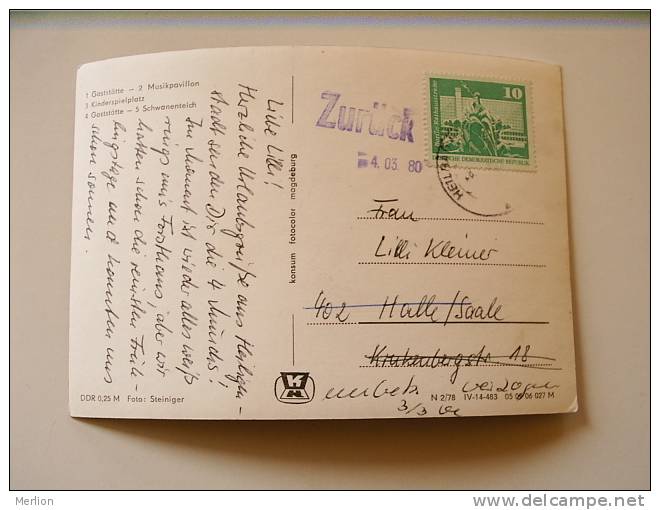 1 Gaststätte – 2 Musikpavillon
3 Kinderspielplatz
4 Gaststätte – 5 Schwanenteich
Liebe Lilli!
Herzliche Urlaubsgrüße aus Heiligen-
stadt senden Dir die 4 
Im Moment ist wieder alles weiß
rings um's Forsthaus, aber wir
hatten schon die reinsten Früh-
lingstage und konnten uns
schon sonnen.
DDR 0,25 M Foto: Steiniger
konsum fotocolor magdeburg
Zurück
4. 03. 80
10
DEUTSCHE DEMOKRATISCHE REPUBLIK
Frau
Lilli Kleiner
402 Halle/Saale
Krukenbergstr. 18
unbek. verzogen
3/3
N 2/78 IV-14-483 05 06 06 027 M
Merlion
www.delcampe.net